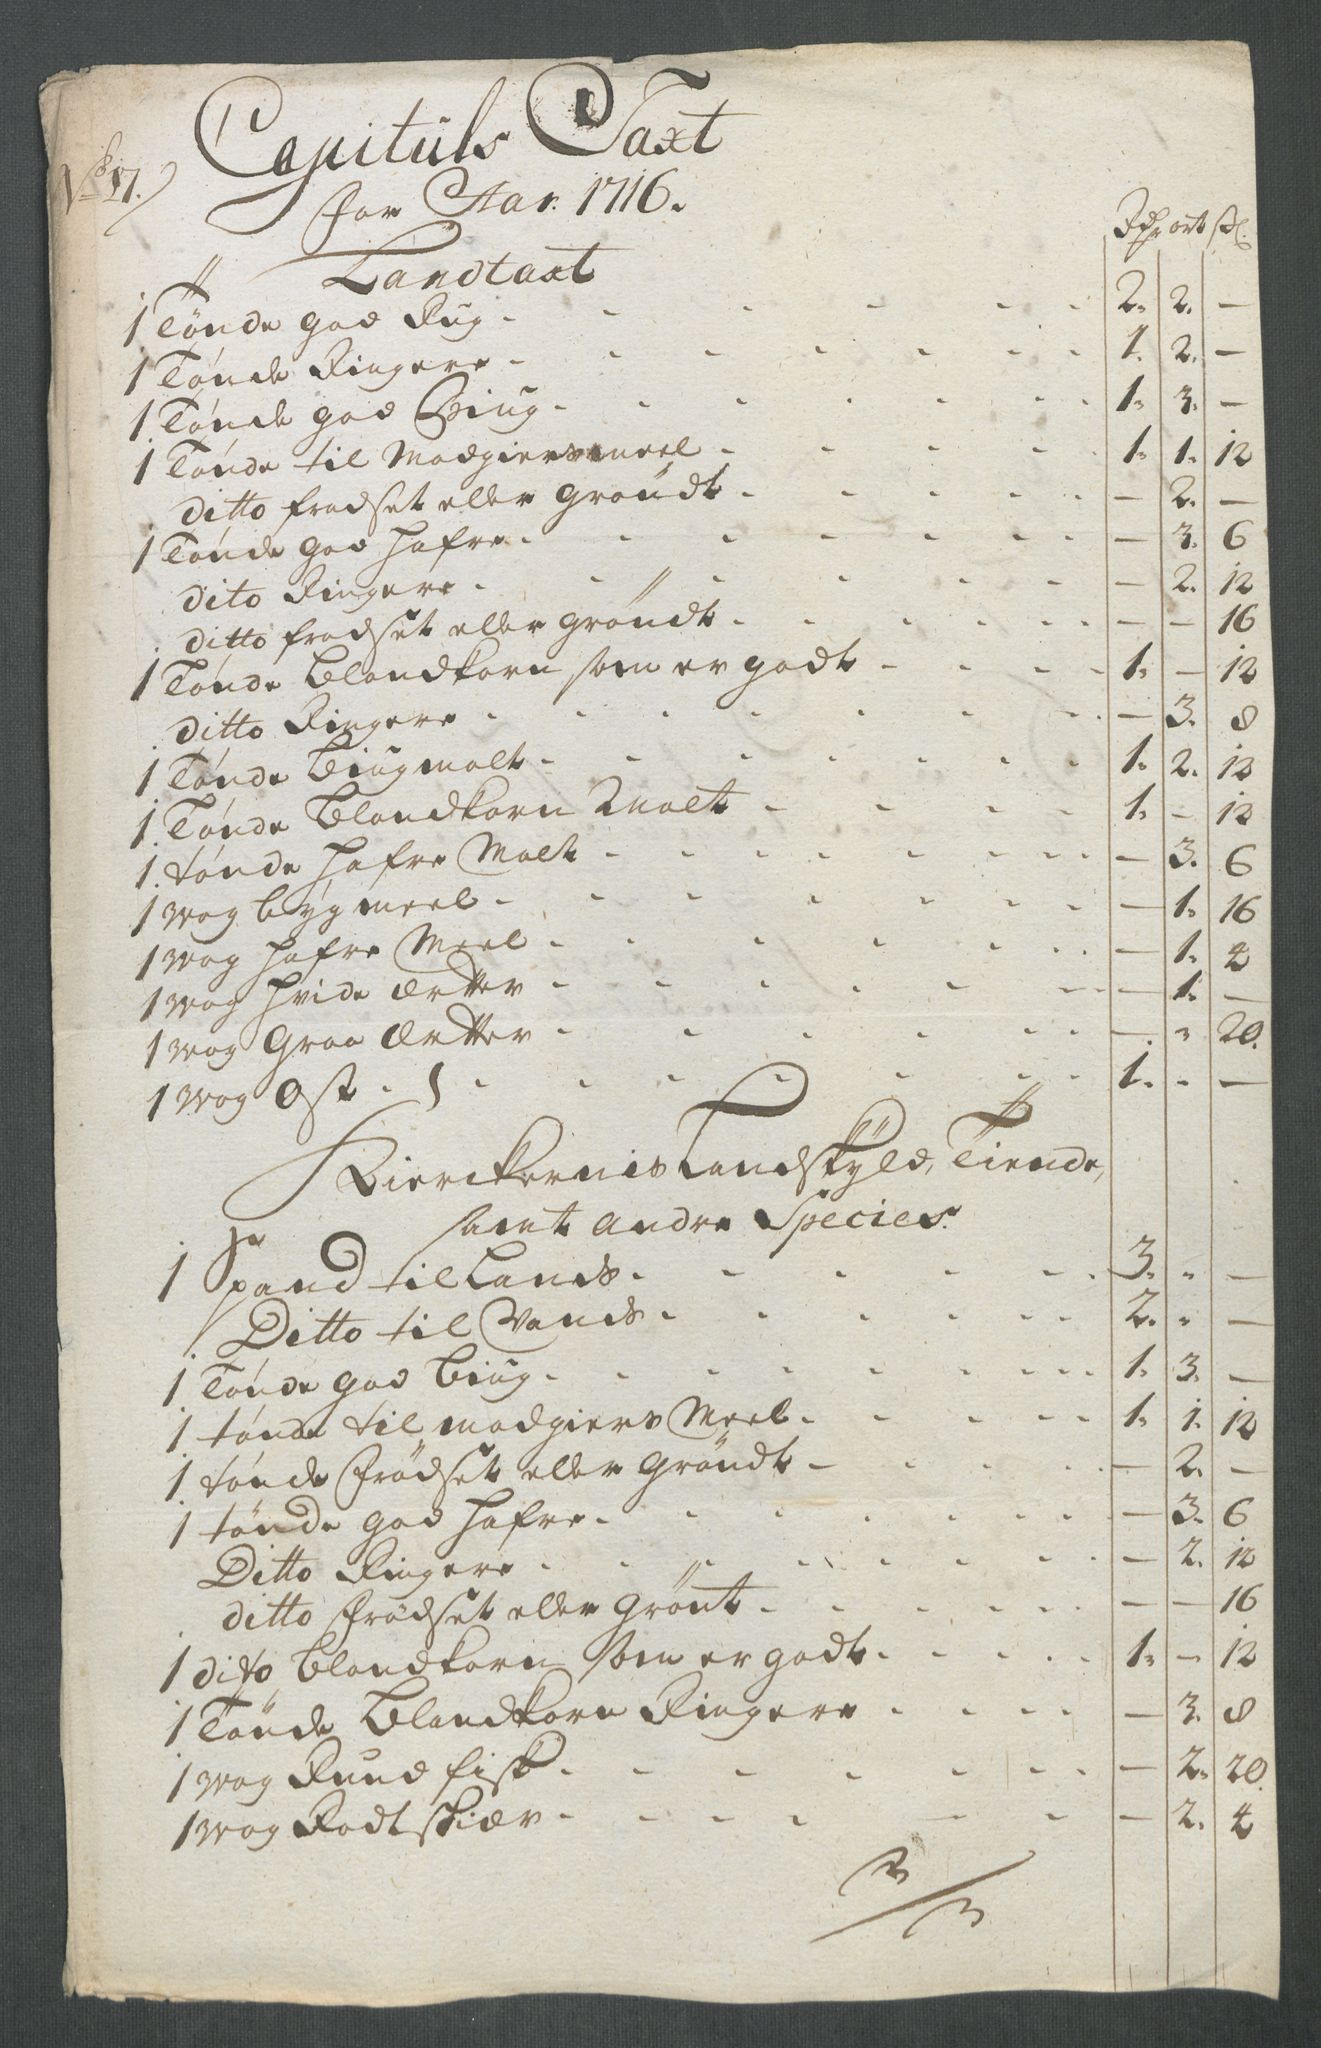 No 17.
Capituls Taxt
for Aar. 1716.
Rdr ort sk.
Landtaxt
1 Tønde god Rug - 2. 2. —
1 Tønde Ringere - 1. 2. —
1 Tønde god Biug - 1. 3. —
1 Tønde til Madgiersmeel - 1. 1. 12
ditto frodset eller grøndt - — 2. —
1 Tønde god hafre - — 3. 6
dito Ringere - — 2. 12
ditto frodset eller grøndt - — — 16
1 Tønde Blandkorn som er godt - 1. — 12
ditto Ringere - — 3. 8
1 Tønde Biugmalt - 1. 2. 12
1 Tønde Blandkorn Malt - 1. — 12
1 tønde hafre Malt - — 3. 6
1 Wog byg meel - — 1. 16
1 Wog hafre Meel - — 1. 4
1 Wog hvide Ertter - — 1. —
1 Wog Graa Ertter - — - 20.
1 Wog Ost - 1. - —
Kierckernis Landskÿld, Tiende,
samt andre Species.
1 Spand til Lands - 3. - —
Ditto til Vands - 2. - —
1 Tønde god biug - 1. 3. —
1 tønde til madgiers Meel - 1. 1. 12
1 tønde frødset eller grøndt - — 2. —
1 tønde god hafre - — 3. 6
Ditto Ringere - — 2. 12
ditto frødset eller grønt - — — 16
1 dito blandkorn som er godt - 1. — 12
1 Tønde Blandkorn Ringere - — 3. 8
1 Wog Rund fisk - — 2. 20.
1 Wog Rodtskiær - — 2. 4